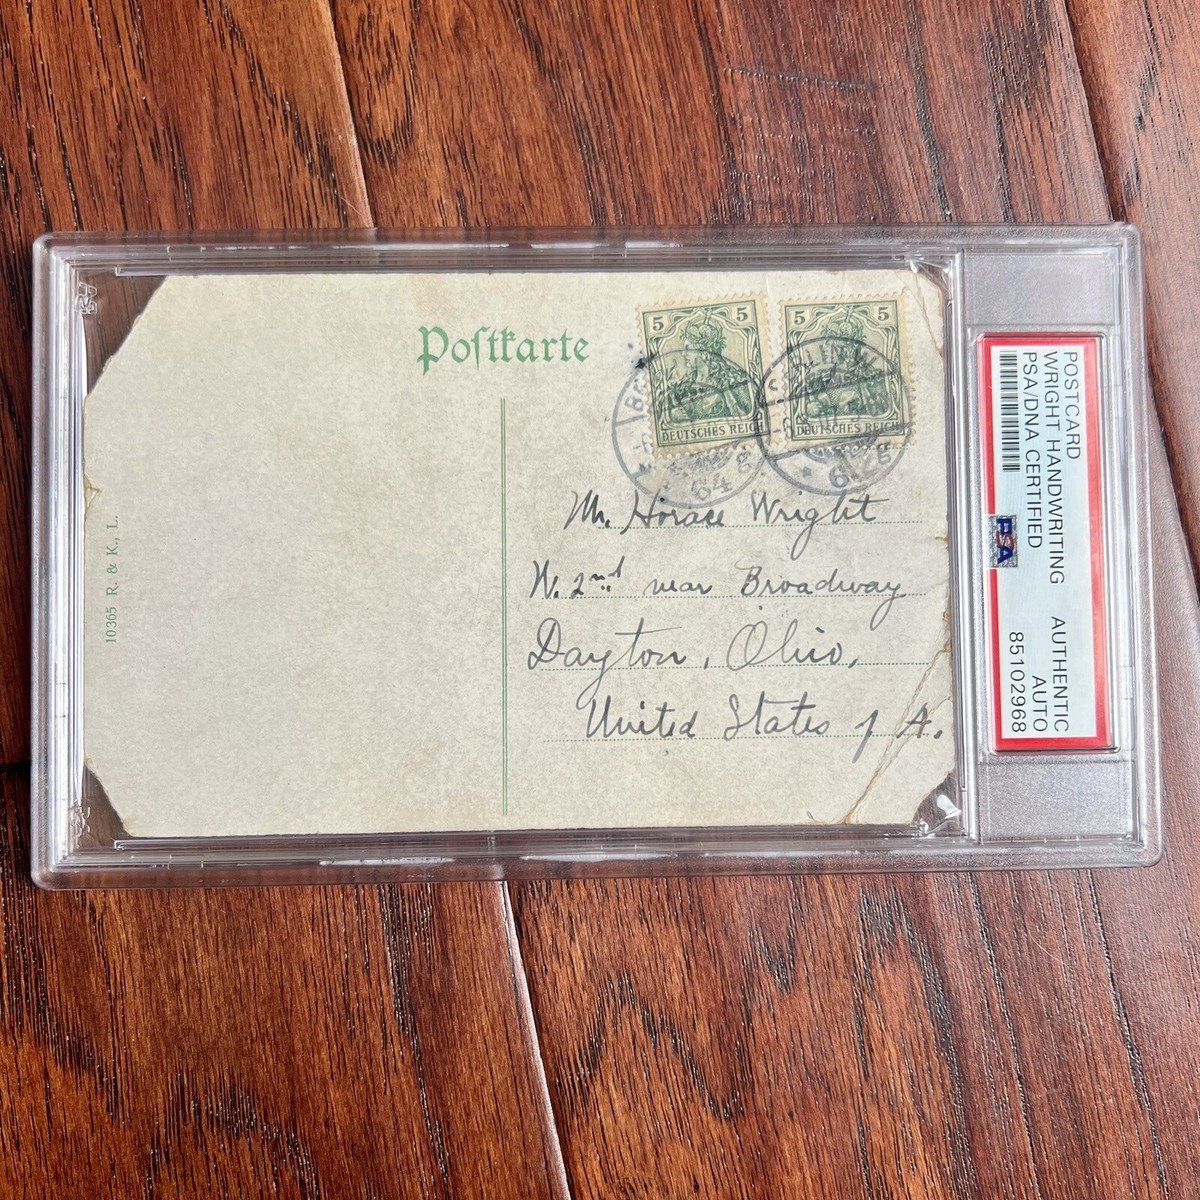 Postkarte
5 5
DEUTSCHES REICH
5 5
DEUTSCHES REICH
Mr. Horace Wright
W. 2nd near Broadway
Dayton, Ohio,
United States of A.
10365 R. & K., L.
POSTCARD
WRIGHT HANDWRITING AUTHENTIC
PSA/DNA CERTIFIED AUTO
85102968
PSA